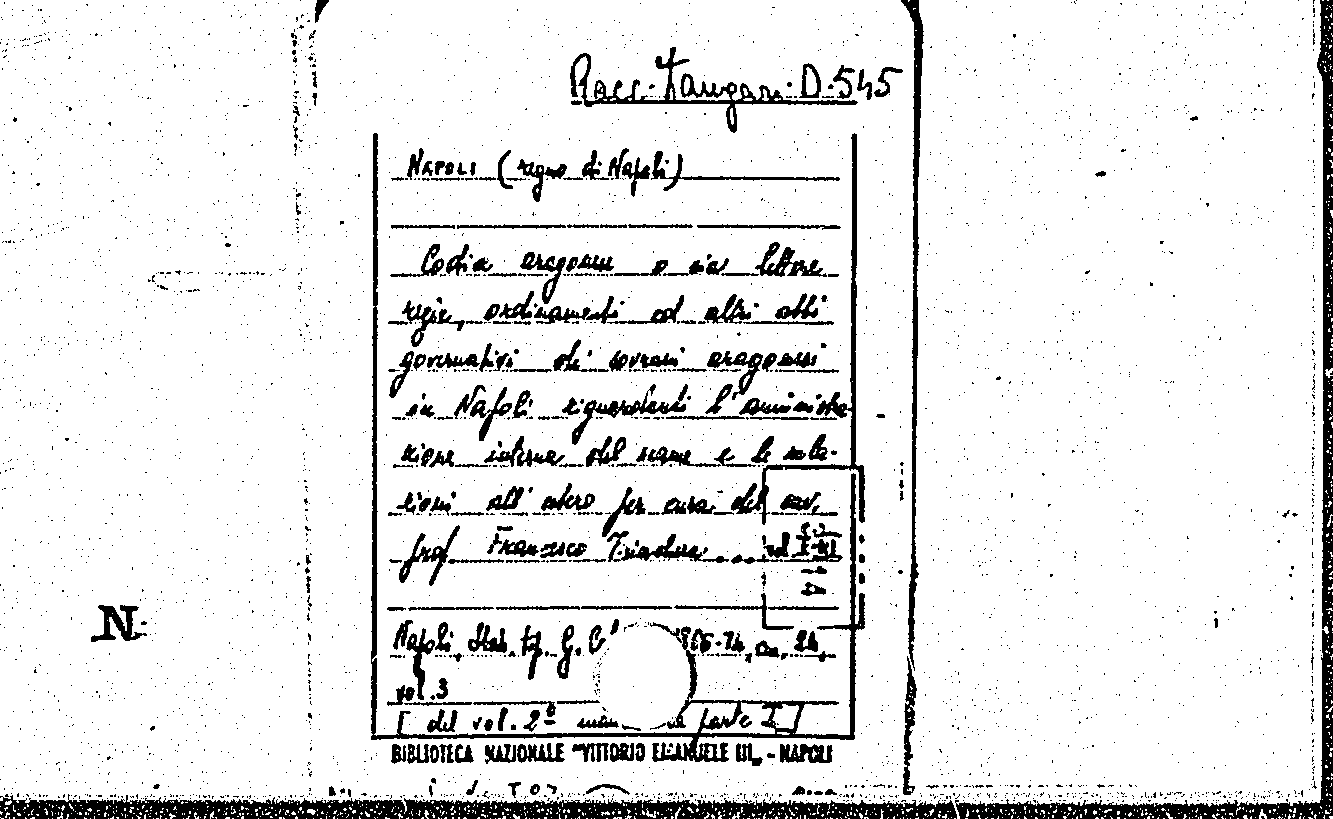 Racc. D. 545
NAPOLI (regno di Napoli)
Codice aragonese o sia lettere
regie, ordinamenti ed altri atti
governativi de' sovrani aragonesi
in Napoli riguardanti l'amministra-
zione interna del reame e le rela-
zioni all'estero per cura del cav.
prof. Francesco Trinchera... vol. I-III
N
Napoli, Stab. tip. G. 1866-74, cm. 24,
vol. 3
[del vol. 2º parte I]
BIBLIOTECA NAZIONALE "VITTORIO EMANUELE III" - NAPOLI